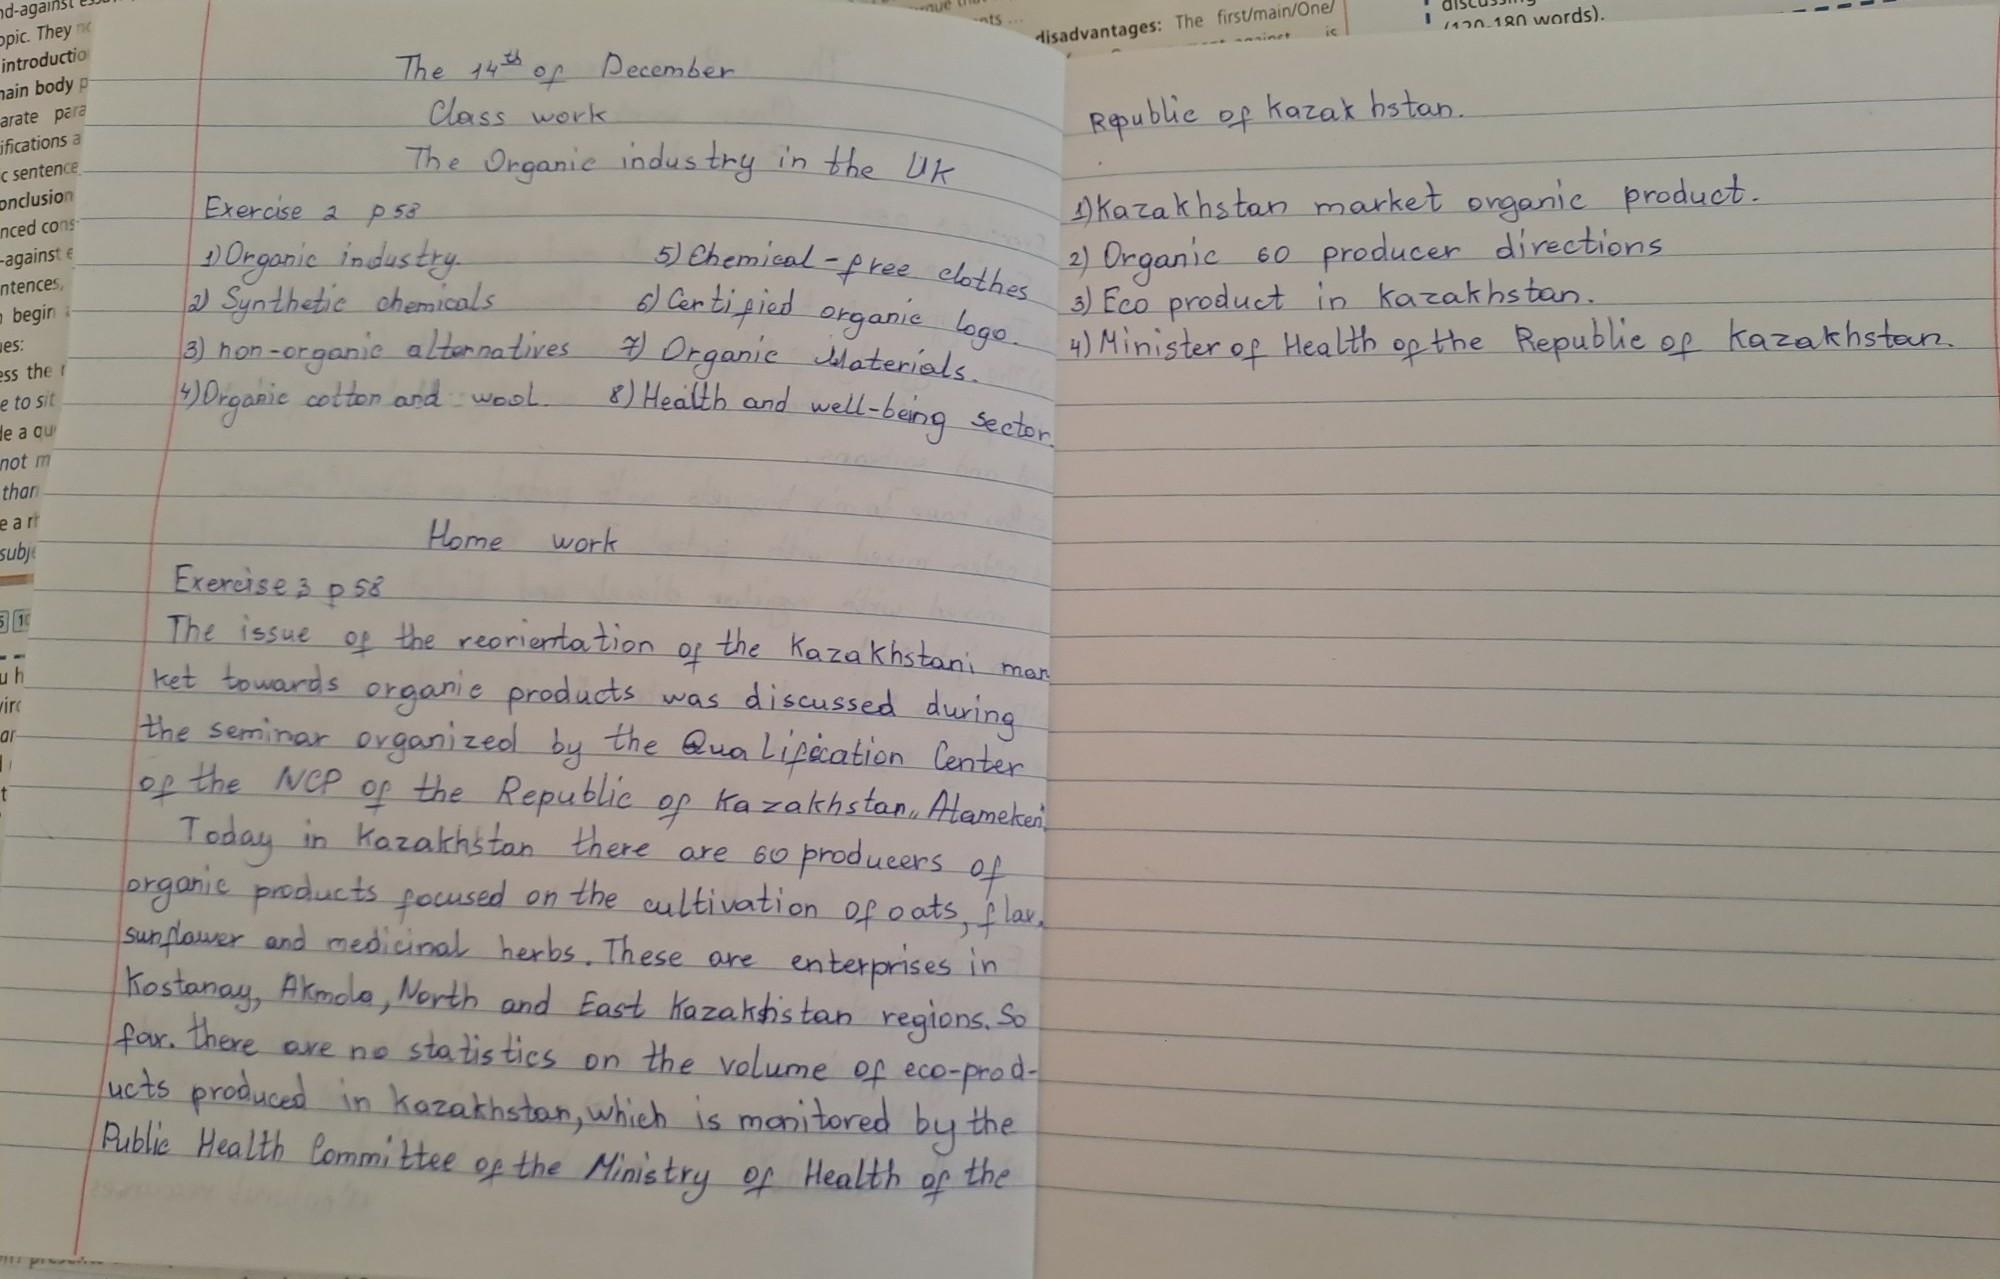 The 14th of December
Class work
The Organic industry in the UK
Exercise 2 p 58
1) Organic industry.
2) Synthetic chemicals
3) non-organic alternatives
4) Organic cotton and wool.
5) Chemical-free clothes
6) Certified organic logo.
7) Organic Materials.
8) Health and well-being sector.
Home work
Exercise 3 p 58
The issue of the reorientation of the Kazakhstani mar
ket towards organic products was discussed during
the seminar organized by the Qualification Center
of the NCP of the Republic of Kazakhstan „Atameken".
Today in Kazakhstan there are 60 producers of
organic products focused on the cultivation of oats, flax,
sunflower and medicinal herbs. These are enterprises in
Kostanay, Akmola, North and East Kazakhstan regions. So
far. there are no statistics on the volume of eco-prod-
ucts produced in Kazakhstan, which is monitored by the
Public Health Committee of the Ministry of Health of the
Republic of Kazakhstan.
1) Kazakhstan market organic product.
2) Organic 60 producer directions
3) Eco product in Kazakhstan.
4) Minister of Health of the Republic of Kazakhstan.
disadvantages: The first/main/One/
(120-180 words).
opic. They
introductio
main body p
arate para
ifications a
c sentence
onclusion
nced cons
-against e
ntences,
begin
ess the
e to sit
le a qu
not m
than
e a
subj